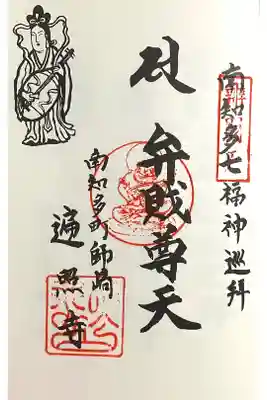 南知多七福神巡拝
弁戝尊天
南知多町師崎
遍照寺